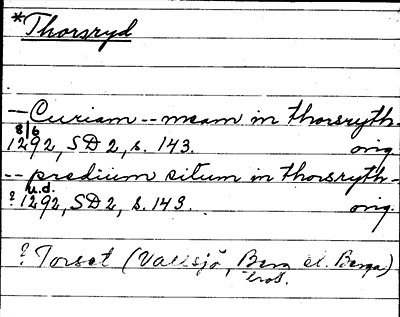 *Thorsryd
-- Curiam -- meam in thorsryth-
8/6
1292, SD 2, s. 143. orig.
-- predium situm in thorsryth-
u.d.
? 1292, SD 2, s. 143. orig.
? Torset (Vallsjö, Berg el. Berga)